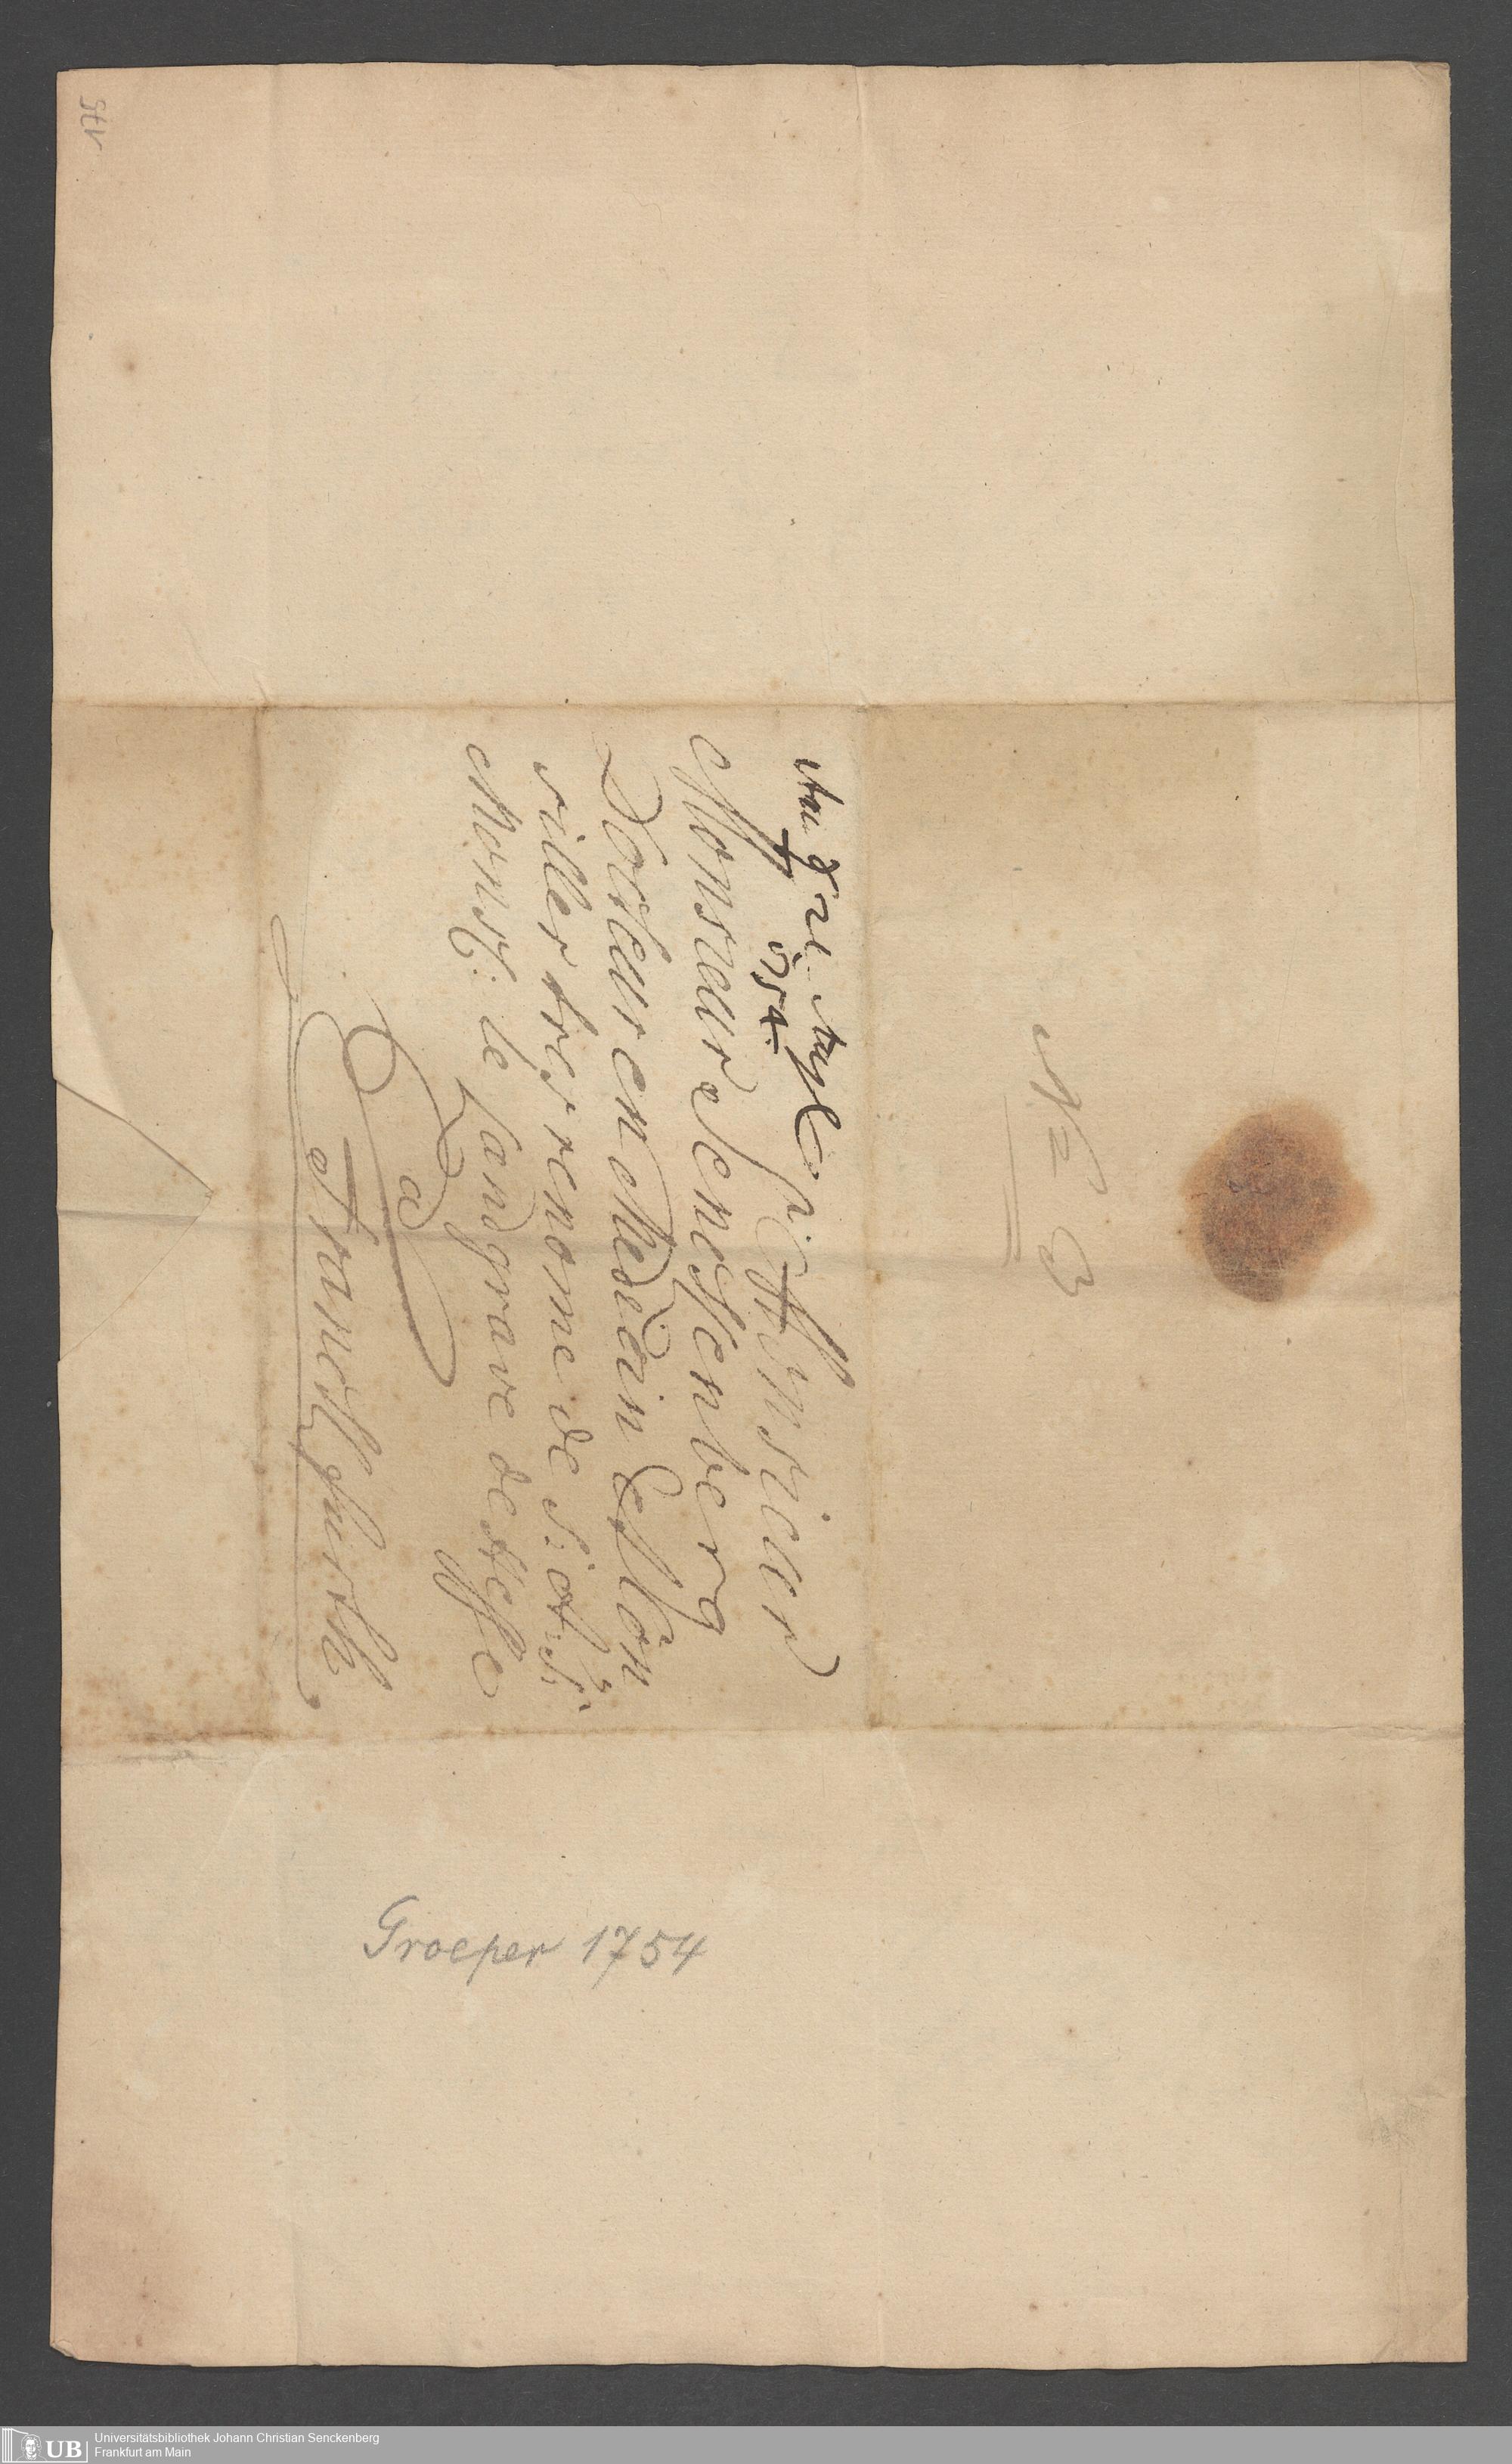 175
d. 21. Aug.
1754.
A Monsieur
Monsieur Senckenberg
Docteur en Medecin & Con
siller tres renome de S: A: S:
Monsg: le Landgrave de Hesse
a
Franckfurth
No 3
Groeper 1754
UB
Universitätsbibliothek Johann Christian Senckenberg
Frankfurt am Main